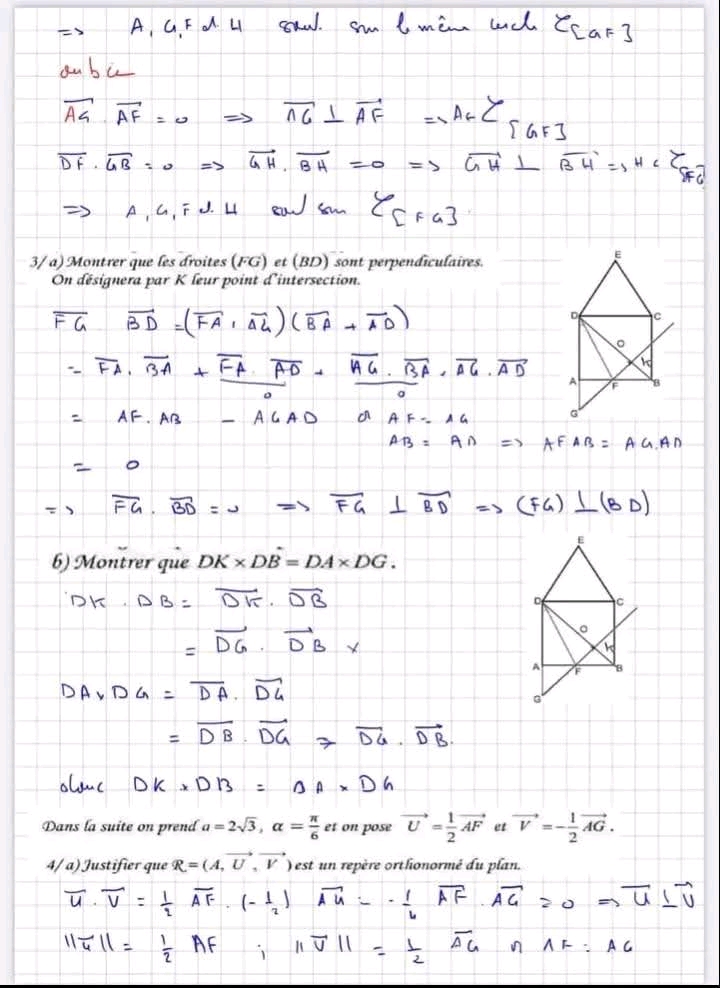 => A, G, F et H sont sur le même cercle ζ[GF]
ou bien
AG . AF = 0 => AG ⊥ AF => A ∈ ζ[GF]
DF . GB = 0 => GH . BH = 0 => GH ⊥ BH => H ∈ ζ[FG]
=> A, G, F et H sont sur ζ[FG]
3/ a) Montrer que les droites (FG) et (BD) sont perpendiculaires.
On désignera par K leur point d'intersection.
E
D C
O
K
A F B
G
FG BD = (FA + AG)(BA + AD)
= FA . BA + FA . AD + AG . BA + AG . AD
0 0
= AF . AB - AG AD or AF = AG
AB = AD => AF AB = AG . AD
= 0
=> FG . BD = 0 => FG ⊥ BD => (FG) ⊥ (BD)
b) Montrer que DK × DB = DA × DG.
E
D C
O
K
A F B
G
DK . DB = DK . DB
= DG . DB ×
DA × DG = DA . DG
= DB . DG = DG . DB.
donc DK × DB = DA × DG
Dans la suite on prend a = 2√3, α = π/6 et on pose U = 1/2 AF et V = -1/2 AG.
4/ a) Justifier que R = (A, U, V) est un repère orthonormé du plan.
U . V = 1/2 AF . (-1/2) AG = -1/4 AF . AG = 0 => U ⊥ V
||U|| = 1/2 AF ; ||V|| = 1/2 AG or AF = AG